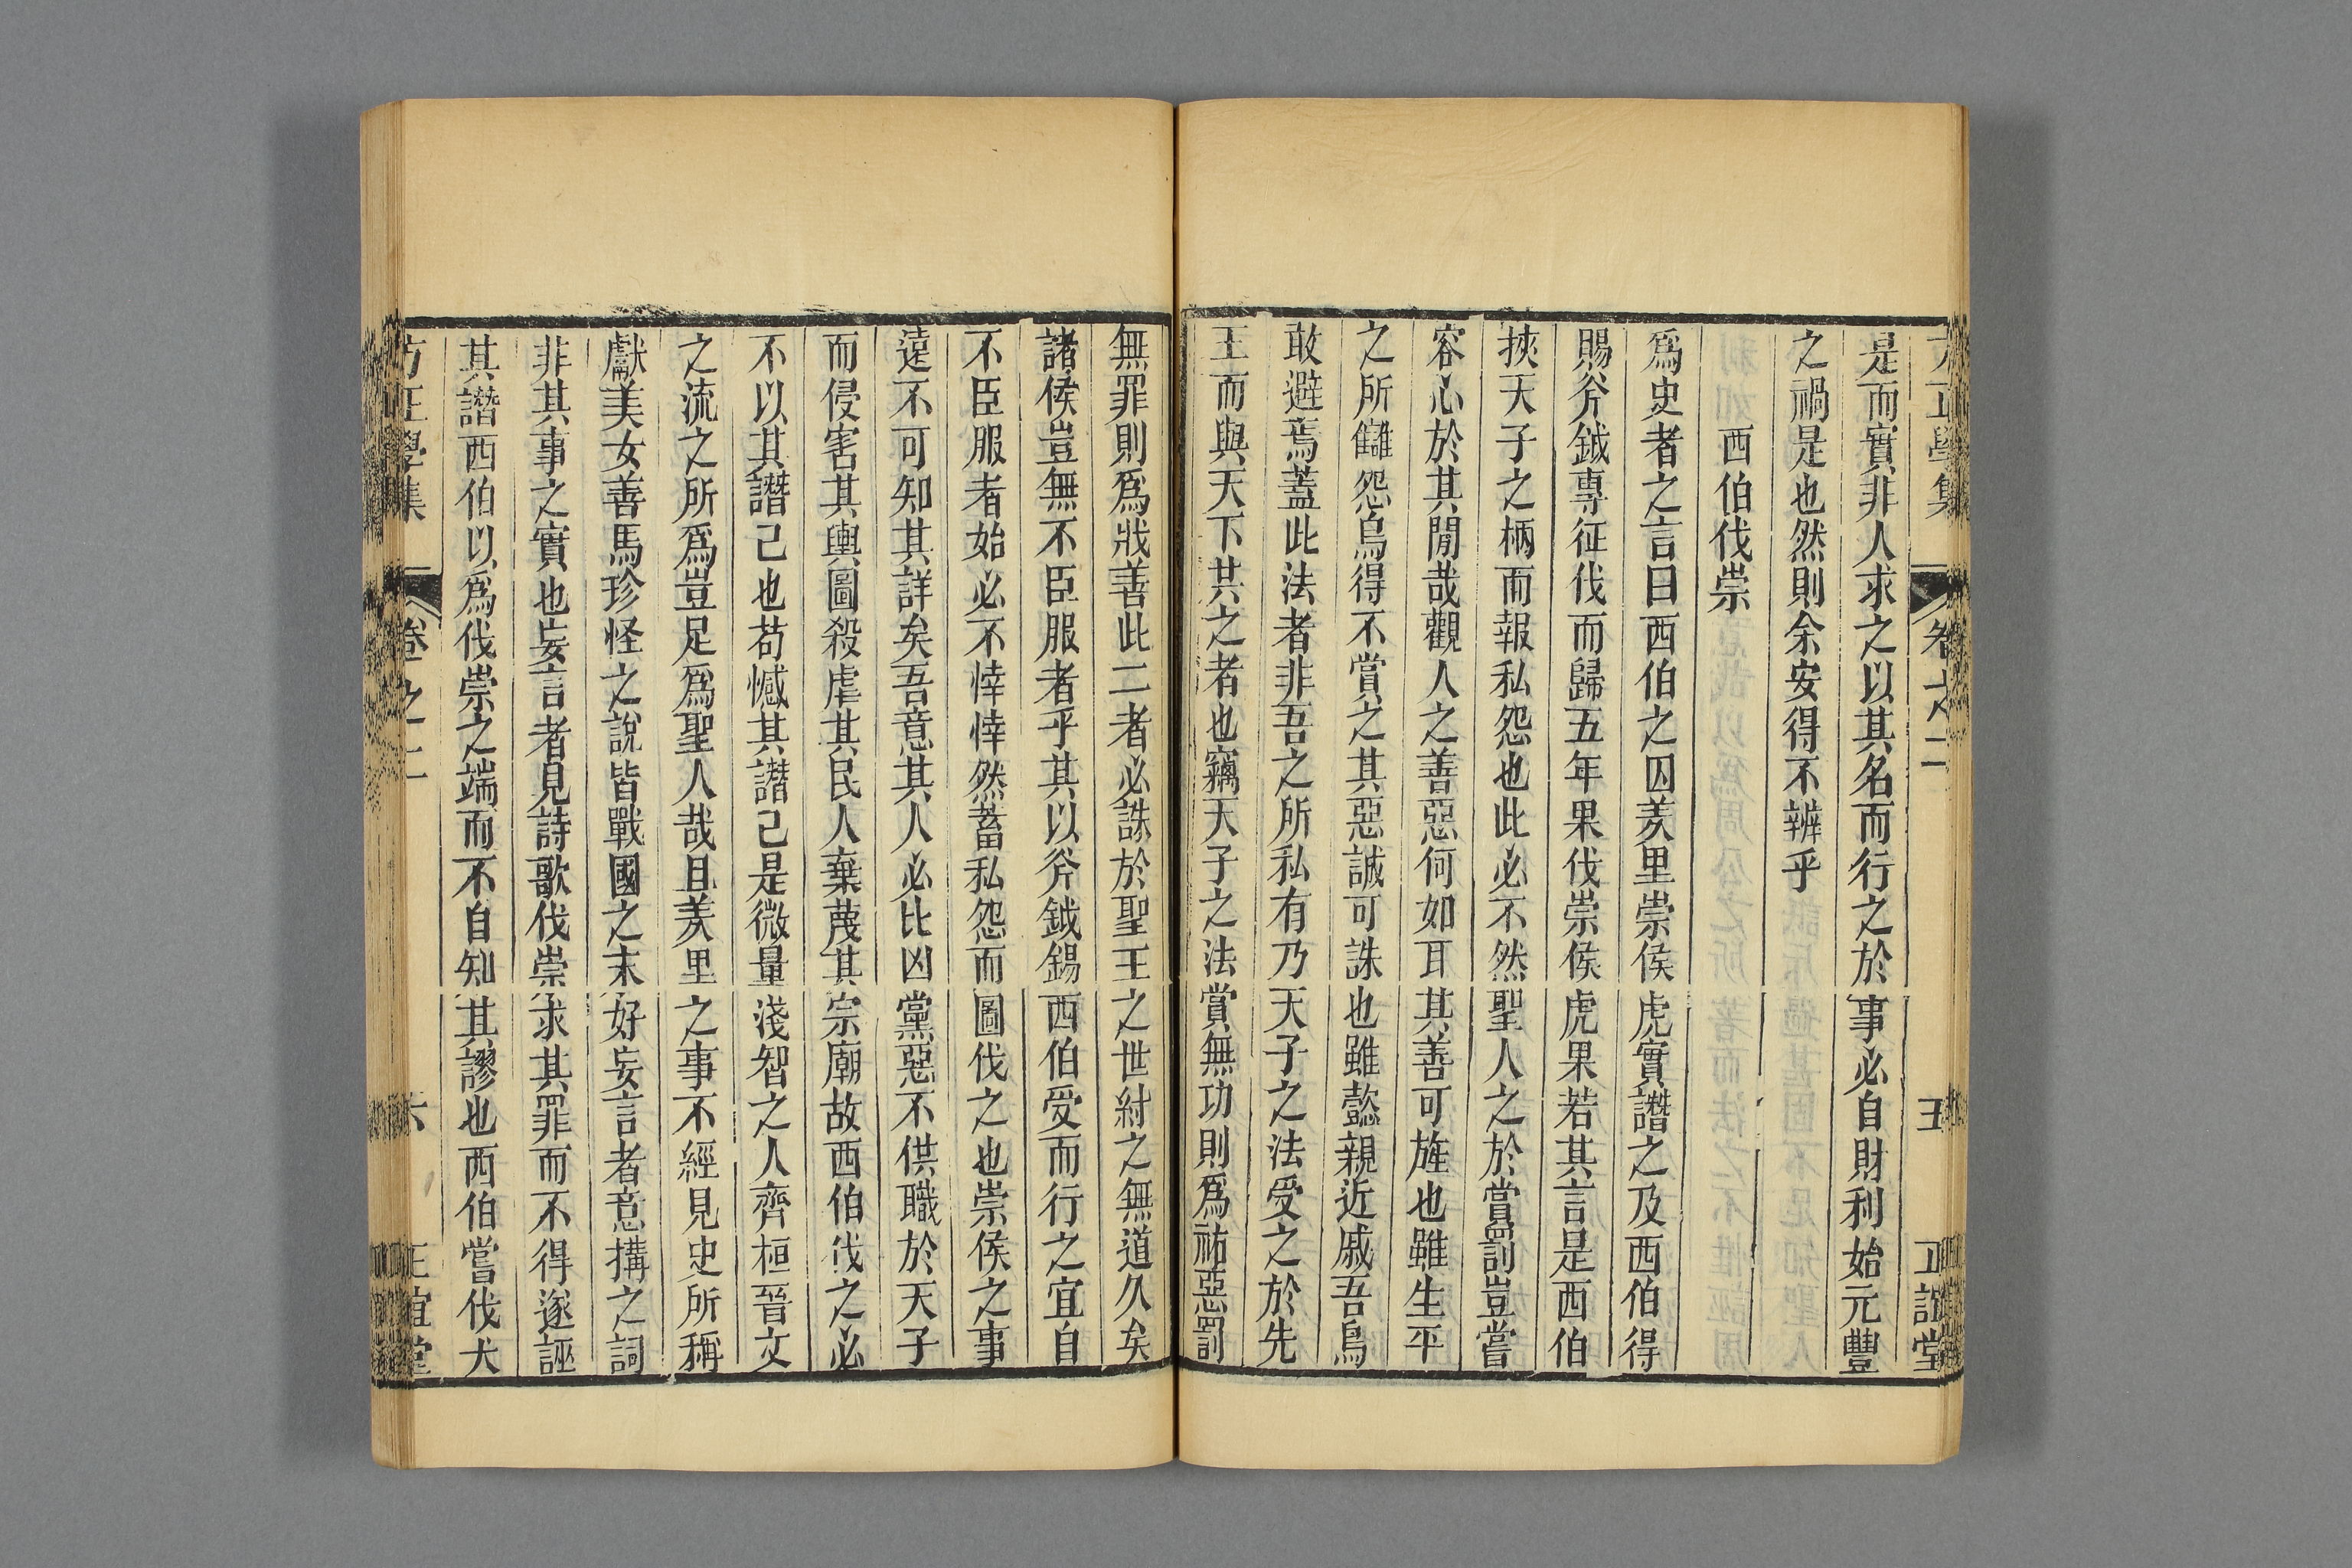 是而實非人求之以其名而行之於事必自財利始元豐
之禍是也然則余安得不辨乎
西伯伐崇
爲史者之言曰西伯之囚羑里崇侯虎實譖之及西伯得
賜斧鉞專征伐而歸五年果伐崇侯虎果若其言是西伯
挾天子之柄而報私怨也此必不然聖人之於賞罰豈嘗
容心於其閒哉觀人之善惡何如耳其善可旌也雖生平
之所讎怨烏得不賞之其惡誠可誅也雖懿親近戚吾烏
敢避焉蓋此法者非吾之所私有乃天子之法受之於先
王而與天下共之者也竊天子之法賞無功則爲祐惡罰
無罪則爲戕善此二者必誅於聖王之世紂之無道久矣
諸侯豈無不臣服者乎其以斧鉞錫西伯受而行之宜自
不臣服者始必不悻悻然蓄私怨而圖伐之也崇侯之事
遠不可知其詳矣吾意其人必比凶黨惡不供職於天子
而侵害其輿圖殺虐其民人棄蔑其宗廟故西伯伐之必
不以其譖己也苟憾其譖己是微量淺智之人齊桓晉文
之流之所爲豈足爲聖人哉且羑里之事不經見史所稱
獻美女善馬珍怪之說皆戰國之末好妄言者意搆之詞
非其事之實也妄言者見詩歌伐崇求其罪而不得遂誣
其譖西伯以爲伐崇之端而不自知其謬也西伯嘗伐犬
方正學集 卷之二 六 正誼堂